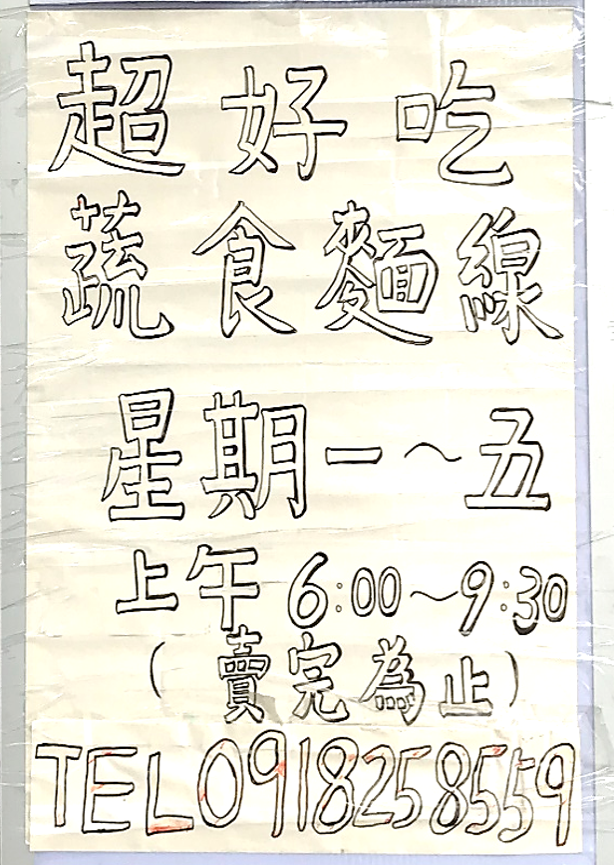 超好吃
蔬食麵線
星期一～五
上午6:00～9:30
(賣完為止)
TEL0918258559